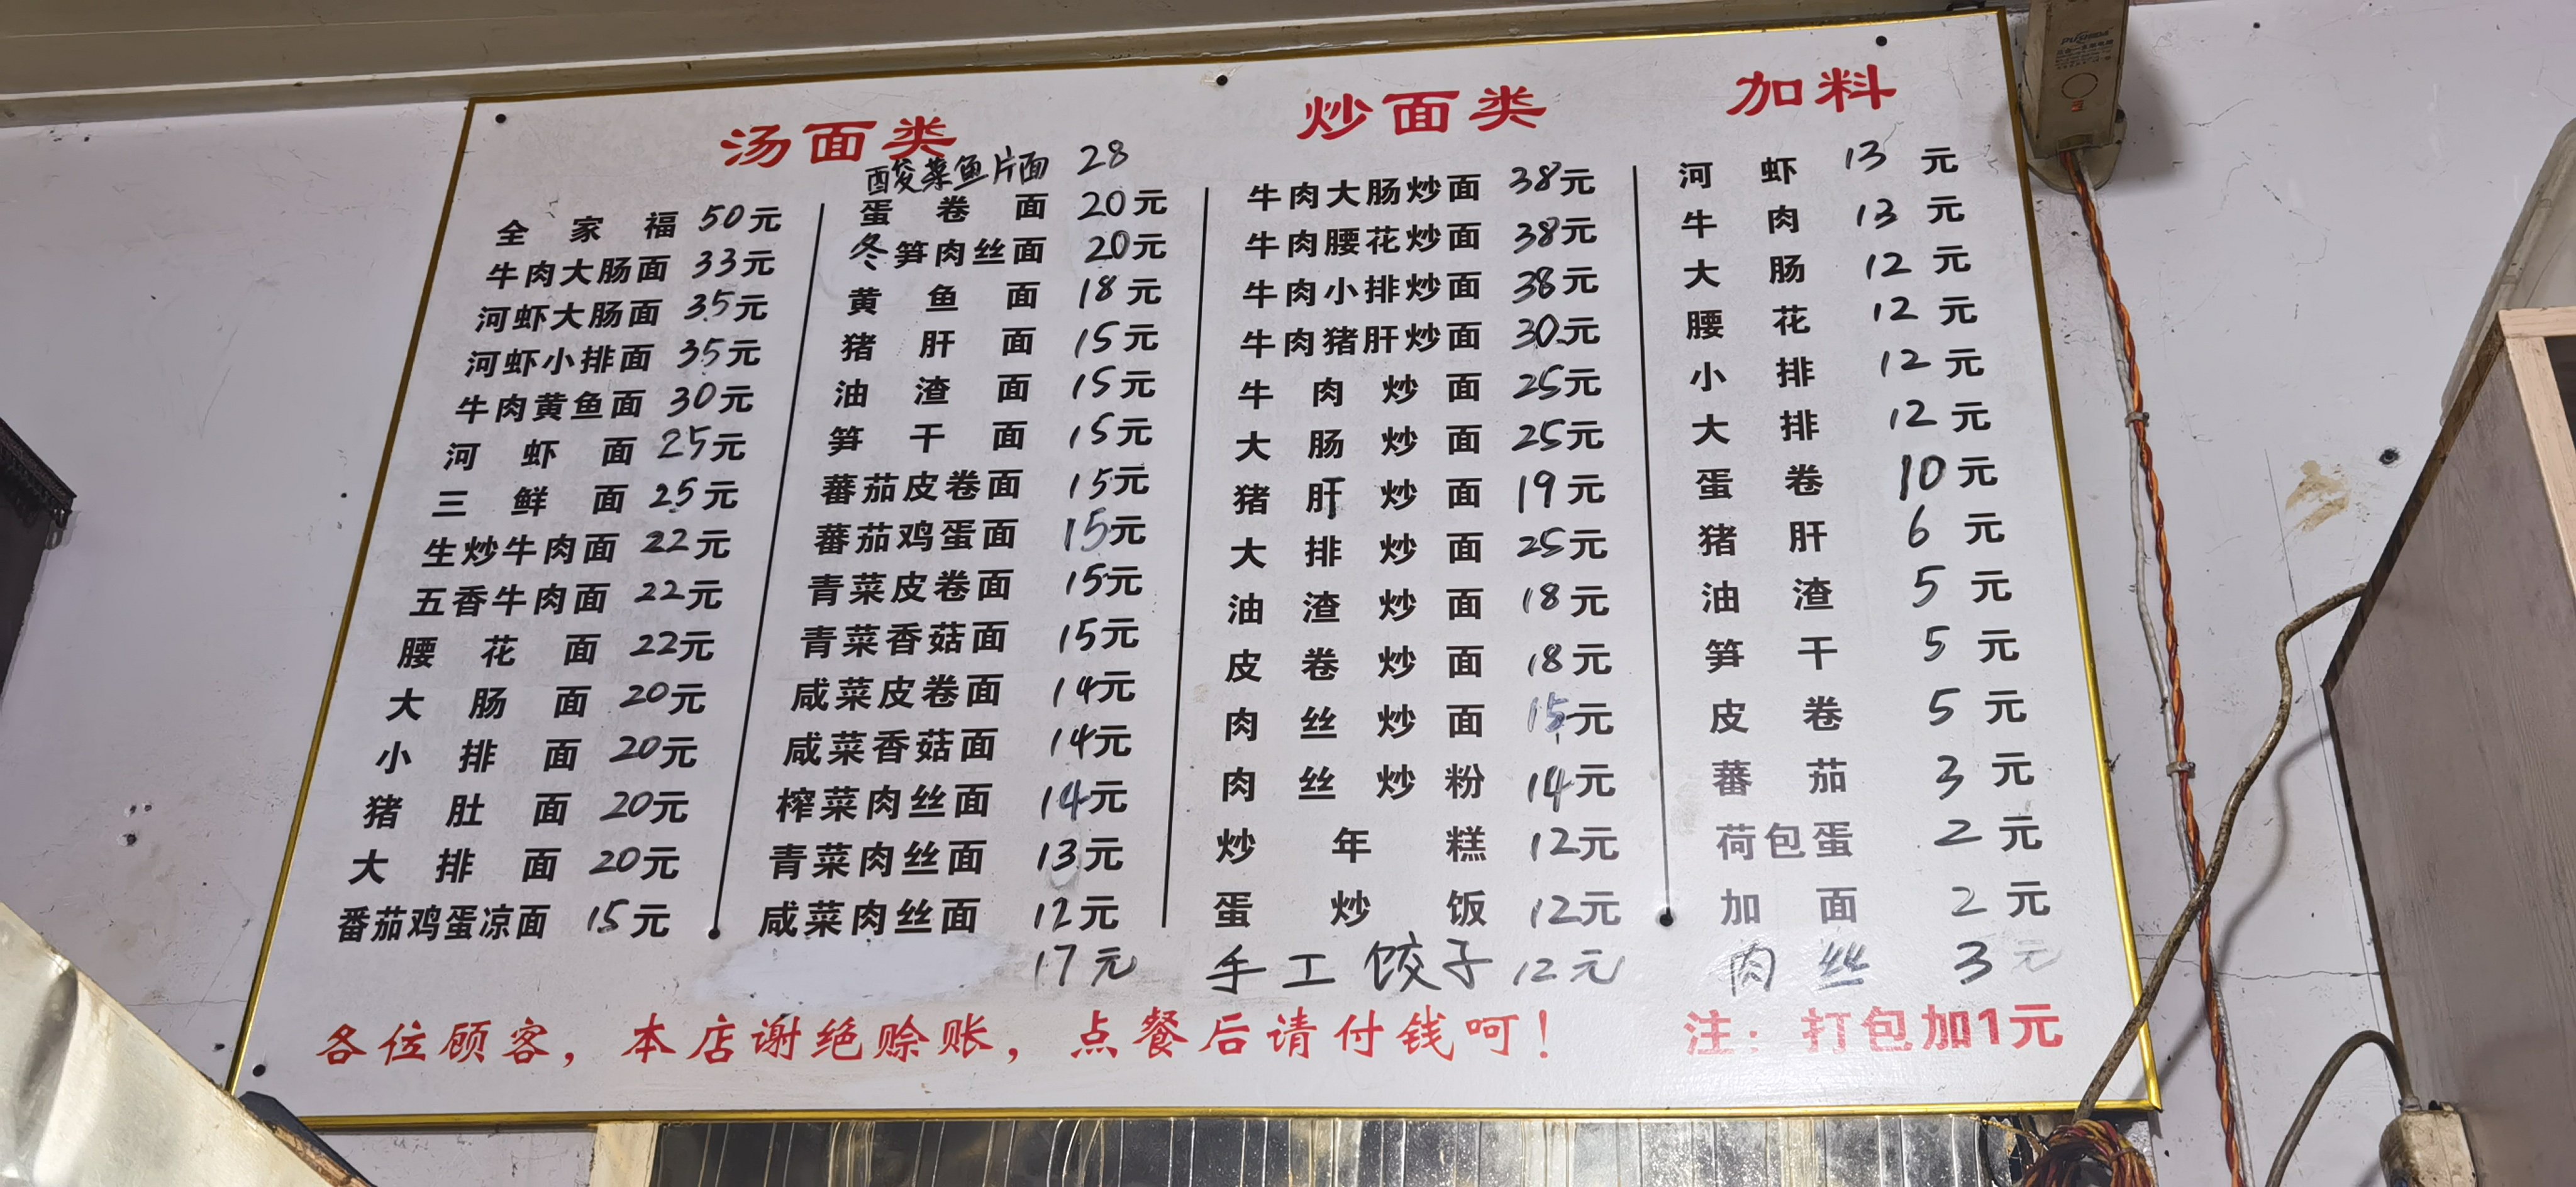 汤面类
全家福 50元
牛肉大肠面 33元
河虾大肠面 35元
河虾小排面 35元
牛肉黄鱼面 30元
河虾面 25元
三鲜面 25元
生炒牛肉面 22元
五香牛肉面 22元
腰花面 22元
大肠面 20元
小排面 20元
猪肚面 20元
大排面 20元
番茄鸡蛋凉面 15元
酸菜鱼片面 28
蛋卷面 20元
冬笋肉丝面 20元
黄鱼面 18元
猪肝面 15元
油渣面 15元
笋干面 15元
蕃茄皮卷面 15元
蕃茄鸡蛋面 15元
青菜皮卷面 15元
青菜香菇面 15元
咸菜皮卷面 14元
咸菜香菇面 14元
榨菜肉丝面 14元
青菜肉丝面 13元
咸菜肉丝面 12元
17元
炒面类
牛肉大肠炒面 38元
牛肉腰花炒面 38元
牛肉小排炒面 38元
牛肉猪肝炒面 30元
牛肉炒面 25元
大肠炒面 25元
猪肝炒面 19元
大排炒面 25元
油渣炒面 18元
皮卷炒面 18元
肉丝炒面 15元
肉丝炒粉 14元
炒年糕 12元
蛋炒饭 12元
手工饺子 12元
加料
河虾 13元
牛肉 13元
大肠 12元
腰花 12元
小排 12元
大排 12元
蛋卷 10元
猪肝 6元
油渣 5元
笋干 5元
皮卷 5元
蕃茄 3元
荷包蛋 2元
加面 2元
肉丝 3元
各位顾客，本店谢绝赊账，点餐后请付钱呵！
注：打包加1元